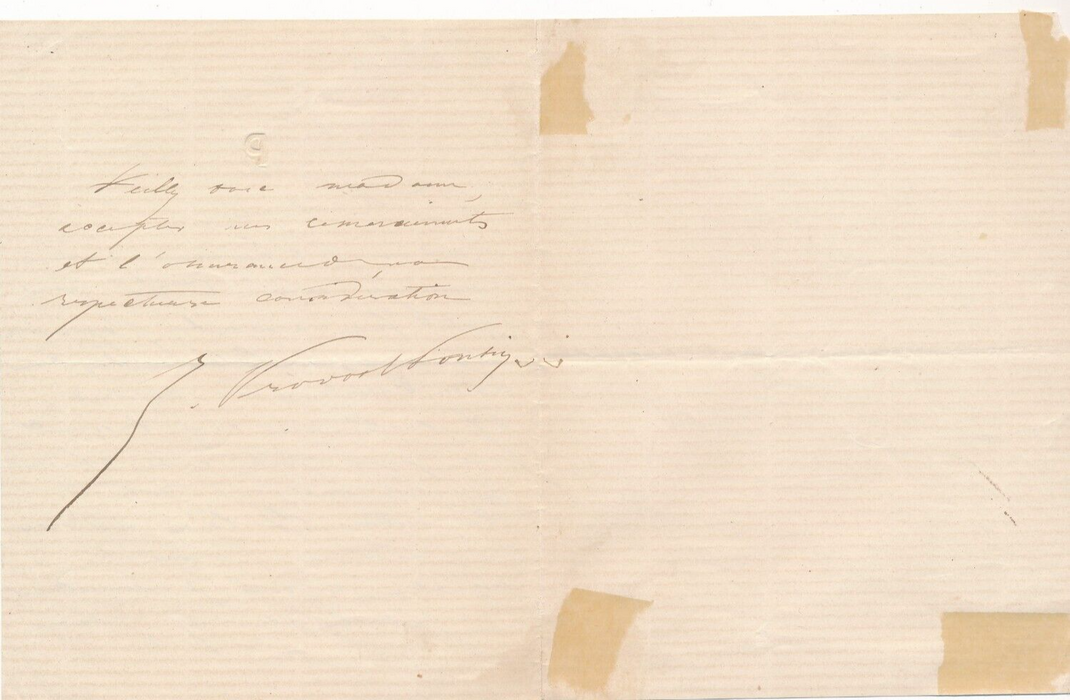 Veillez donc madame,
accepter mes remerciements
et l'assurance de ma
respectueuse considération
Provost Ponsin